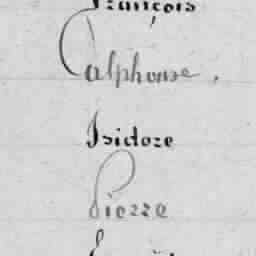 François
Calphonse.
Isidore
Pierre